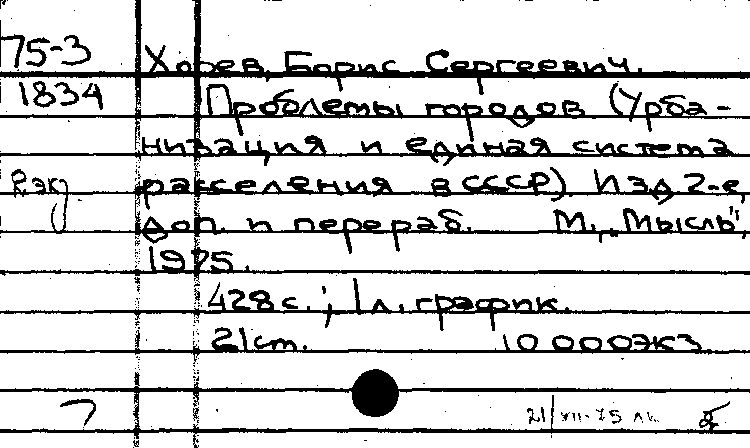 75-3 Хорев, Борис Сергеевич.
1834 Проблемы городов (Урба-
низация и единая система
2 экз расселения в СССР). Изд 2-е,
доп. и перераб. М., „Мысль",
1975.
428 с.; 1 л. график.
21 cm. 10 000 экз
21/XII-75